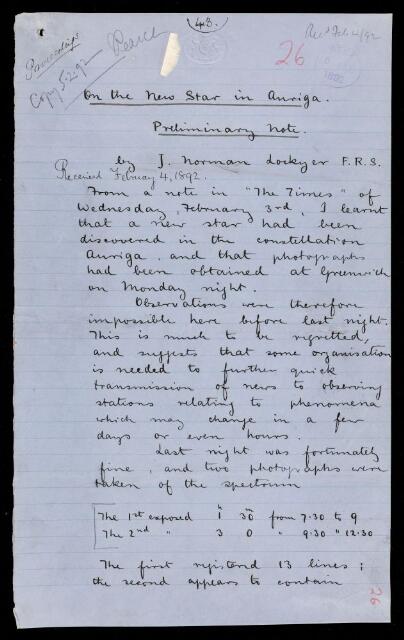 43.
Recd Feb 4/92
Proceedings
Copy 5.2.92
Pearce
26
On the New Star in Auriga.
Preliminary Note.
by J. Norman Lockyer F.R.S.
Received February 4, 1892.
From a note in "The Times" of
Wednesday, February 3rd, I learnt
that a new star had been
discovered in the constellation
Auriga, and that photographs
had been obtained at Greenwich
on Monday night.
Observations were therefore
impossible here before last night.
This is much to be regretted,
and suggests that some organisation
is needed to further quick
transmission of news to observing
stations relating to phenomena
which may change in a few
days or even hours.
Last night was fortunately
fine, and two photographs were
taken of the spectrum
The 1st exposed 1h 30m from 7.30 to 9
The 2nd " 3 0 " 9.30 " 12.30
The first registered 13 lines;
the second appears to contain
26